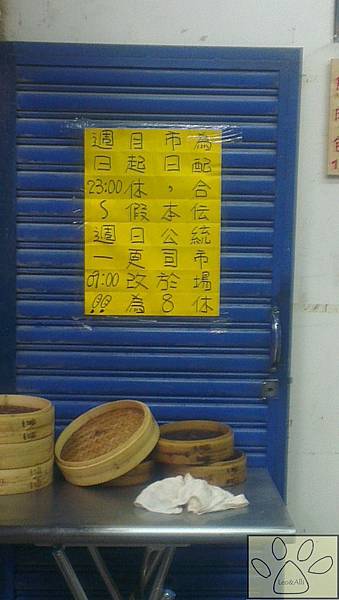 為配合伝統市場休
市日，本公司於8
月起休假日更改為
週日23:00~週一09:00!!
Leo&Alli